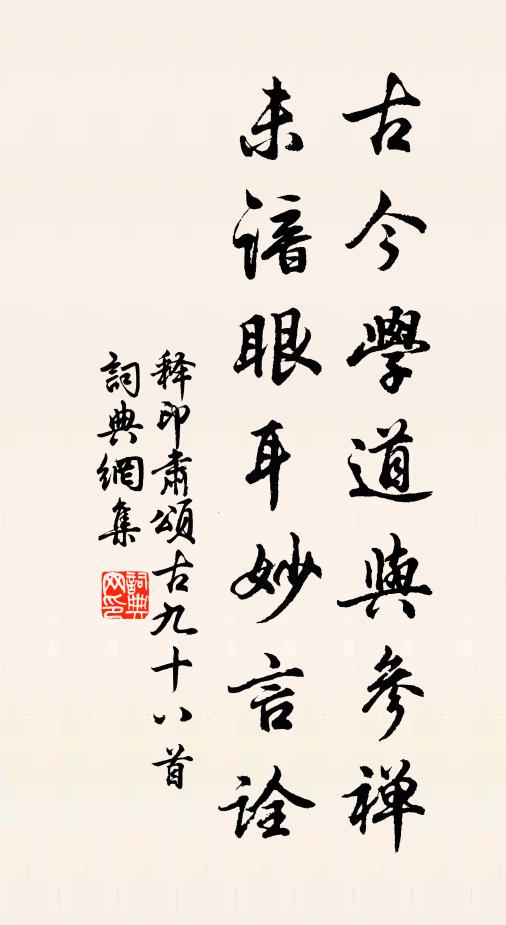 古今學道與參禪
未諳眼耳妙言詮
释印肅頌古九十八首
詞典網集
詞典网印